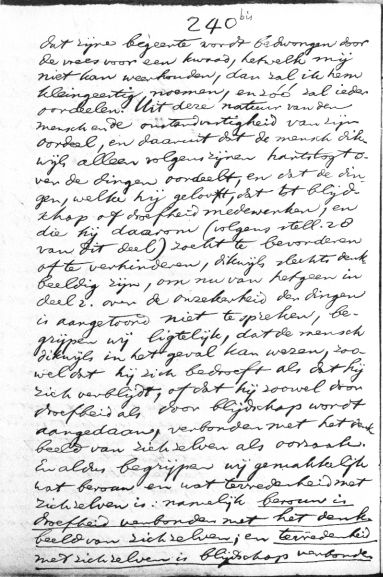 240 bis
dat zijne begeerte wordt bedwongen door
de vrees voor een kwaad, hetwelk mij
niet kan weerhouden, dan zal ik hem
kleingeestig noemen, en zóó zal ieder
oordeelen. Uit deze natuur van den
mensch en de onstandvastigheid van zijn
oordeel, en daaruit dat de mensch dik-
wijls alleen volgens zijnen hartstogt o-
ver de dingen oordeelt, en dat de din-
gen, welke hij gelooft, dat tot blijd-
schap of droefheid medewerken, en
die hij daarom (volgens stell. 28
van dit deel) zoekt te bevorderen
of te verhinderen, dikwijls slechts denk
beeldig zijn, om nu van hetgeen in
deel 2. over de onzekerheid der dingen
is aangetoond niet te spreken, be-
grijpen wij ligtelijk, dat de mensch
dikwijls in het geval kan wezen, zoo-
wel dat hij zich bedroeft als dat hij
zich verblijdt, of dat hij zoowel door
droefheid als door blijdschap wordt
aangedaan, verbonden met het denk
beeld van zichzelven als oorzaak.
En aldus begrijpen wij gemakkelijk
wat berouw en wat tevredenheid met
zichzelven is: namelijk berouw is
droefheid verbonden met het denk-
beeld van zichzelven, en tevredenheid
met zichzelven is blijdschap verbonden